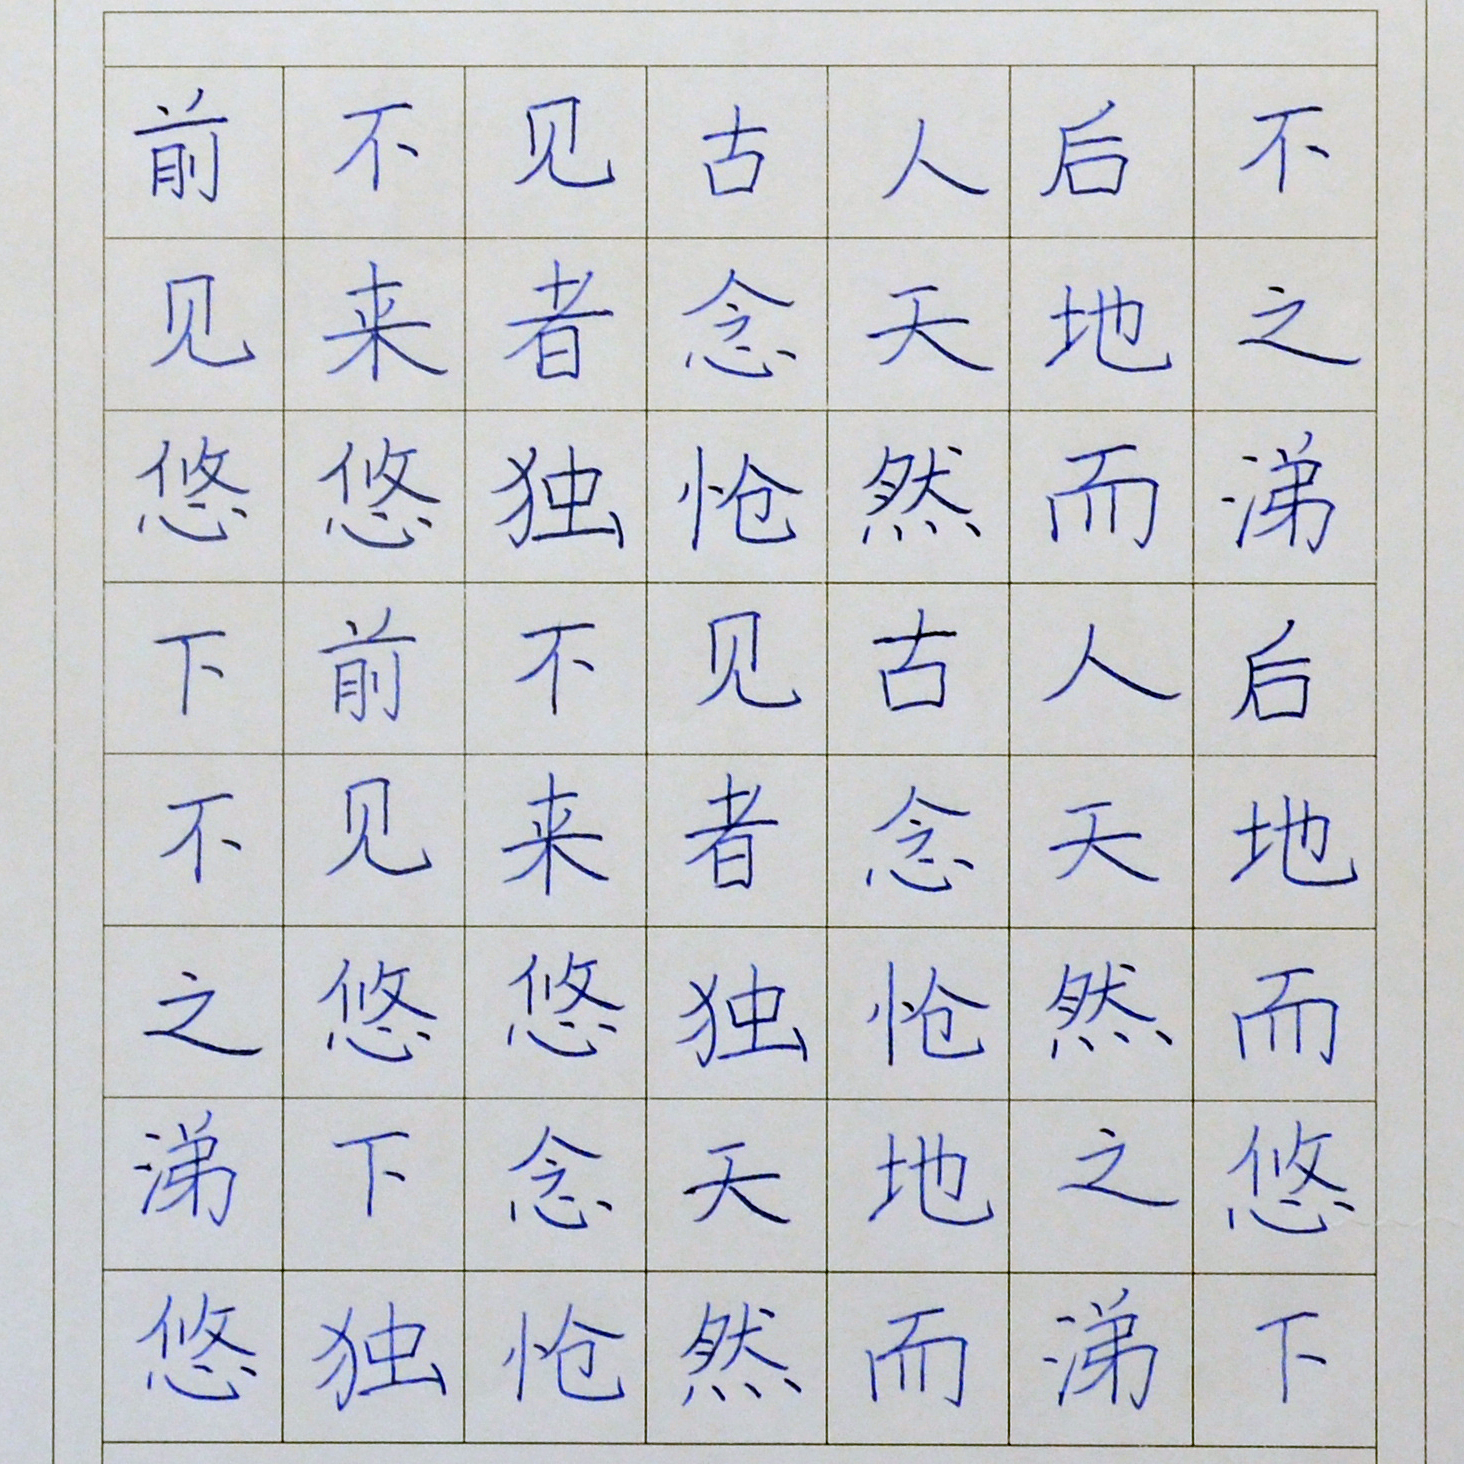 前不见古人后不
见来者念天地之
悠悠独怆然而涕
下前不见古人后
不见来者念天地
之悠悠独怆然而
涕下念天地之悠
悠独怆然而涕下